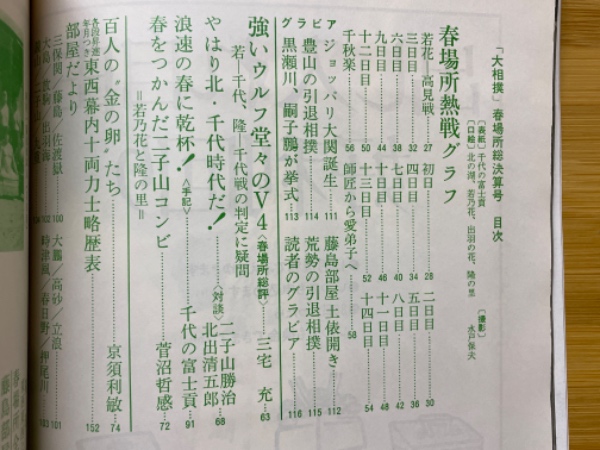 「大相撲」春場所総決算号 目次
〔表紙〕千代の富士貢
〔口絵〕北の湖、若乃花、出羽の花、隆の里
〔撮影〕水戸保夫
春場所熱戦グラフ
若花―高見戦……27 初日……28 二日目……30
三日目……32 四日目……34 五日目……36
六日目……38 七日目……40 八日目……42
九日目……44 十日目……46 十一日目……48
十二日目……50 十三日目……52 十四日目……54
千秋楽……56 師匠から愛弟子へ……58
グラビア
ジョッパリ大関誕生……111 藤島部屋土俵開き……112
豊山の引退相撲……114 荒勢の引退相撲……115
黒瀬川、嗣子鵬が挙式……113 読者のグラビア……116
強いウルフ堂々のV4〈春場所総評〉……三宅 充……63
若―千代、隆―千代戦の判定に疑問
やはり北・千代時代だ!〈対談〉二子山勝治 北出清五郎……68
浪速の春に乾杯!〈手記〉……千代の富士貢……91
春をつかんだ二子山コンビ……菅沼哲感……72
=若乃花と隆の里=
百人の“金の卵”たち……京須利敏……74
各段昇進年月つき 東西幕内十両力士略歴表……152
部屋だより
三保関/藤島/佐渡嶽……100 大鵬/高砂/立浪……101